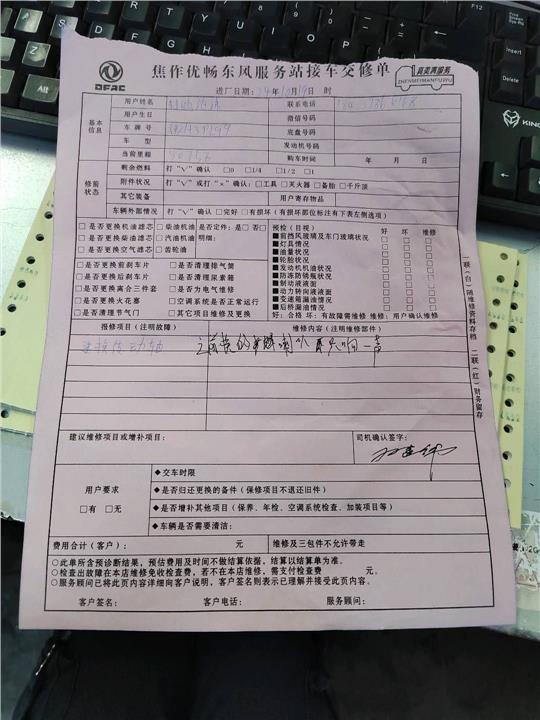 DFAC
焦作优畅东风服务站接车交修单
真美真服务
ZHENMEIZHENFUWU
进厂日期：24年10月19日 时
基本信息
用户姓名 联系电话
用户生日 微信号码
车牌号 底盘号码
车 型 发动机号码
当前里程 购车时间 年 月 日
修前状态
剩余燃料 打“√”确认：□0 □1/4 □1/2 □1
附件状况 打“√”或打“×”确认：□工具 □灭火器 □备胎 □千斤顶
其它装备 用户寄存物品
车辆外部情况 打“√”确认 □完好 □有损坏（有损坏部位标注有下表左侧选项）
□是否更换机油滤芯 □柴油机油 是否定件：是□ 否□
□是否更换柴油滤芯 □汽油机油 明细：
□是否更换空气滤芯 □齿轮油
□是否更换前刹车片 □是否清理排气筒
□是否更换后刹车片 □是否清理尿素箱
□是否更换离合三件套 □是否为电气维修
□是否更换火花塞 □空调系统是否正常运行
□是否清理节气门 □其它项目维修及更换
预检（目视） 好 坏 维修
■前挡风玻璃及车门玻璃状况 □ □ □
■灯具情况 □ □ □
■油量状况 □ □ □
■轮胎状况 □ □ □
■发动机机油状况 □ □ □
■防冻防锈瓶状况 □ □ □
■制动液液面 □ □ □
■动力转向液液面 □ □ □
■变速箱漏油情况 □ □ □
■后桥漏油情况 □ □ □
好：合格 坏：有故障需维修 维修：用户确认维修
一联（白）随维修资料存档 二联（红）财务留存
报修项目（注明故障） 维修内容（注明维修部件）
更换传动轴
建议维修项目或增补项目： 司机确认签字：
用户要求
□有 □无
◆交车时限
◆是否归还更换的备件（保修项目不退还旧件）
◆是否增补其他项目（保养、年检、空调系统检查、加装项目等）
◆车辆是否需要清洁：
费用合计（客户）： 元 维修及三包件不允许带走
○此单所含预诊断结果，预估费用及时间不做结算依据，结算以结算单为准。
○检查出故障在本店维修免收检查费，若不在本店维修，需支付检查费 元。
○服务顾问已将此页内容详细向客户说明，客户签名则表示已理解并接受此页内容。
客户签名： 客户电话： 服务顾问：